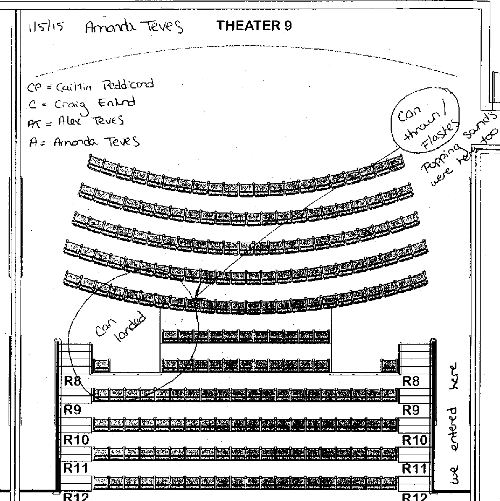 1/5/15 Amanda Teves THEATER 9
CP = Caitlin Peddicord
C = Craig Enlund
AT = Alex Teves
A = Amanda Teves
Can
thrown /
Flashes
Popping sounds
were here too
Can
landed
R8 R8
R9 R9
R10 R10
R11 R11
R12 R12
we entered here